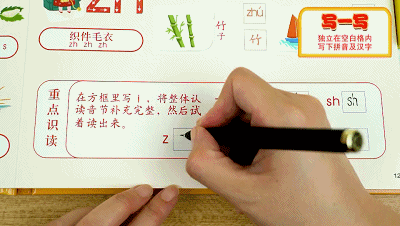 zhú
竹
子
竹
织件毛衣
zh zh zh
s
写一写
独立在空白格内
写下拼音及汉字
重点识读
在方框里写 i，将整体认
读音节补充完整，然后试
着读出来。
sh shi
z
12